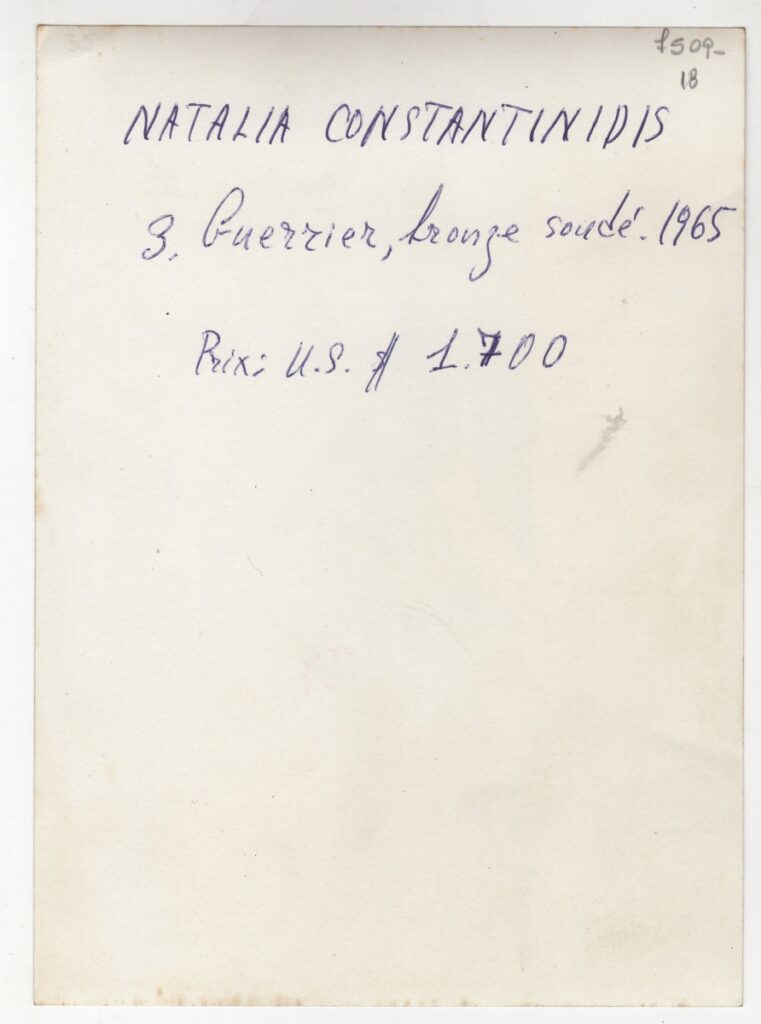 7509-
18
NATALIA CONSTANTINIDIS
3. Guerrier, bronze soudé. 1965
Prix: U.S. $ 1.700